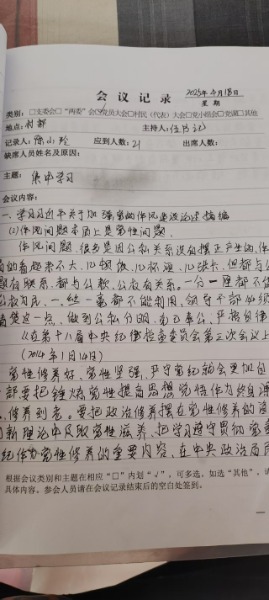 会 议 记 录 2025年4月18日
星期
类别：□支委会□“两委”会□党员大会□村民（代表）大会□党小组会□党课□其他
地点：村部 主持人：任书记
记录人：陈小玲 应到人数：21 出席人数：
缺席人员姓名及原因：
主题：集中学习
会议内容：
一、学习习近平关于加强党的作风建设论述摘编
（2）作风问题本质上是党性问题
作风问题，很多是因公私关系没有摆正产生的，作
的看起来不大，几顿饭，几杯酒，几张卡，但都与公
有联系，都与公款、公权有关系，一分一厘都不
一丝一毫都不能
这一点，做到公私分明、克己奉公、严格自律
《在第十八届中央纪律检查委员会第三次会议上
（2014年1月14日）
党性修养好、党性坚强，严守党纪就会更加自
部要把锤炼党性提高思想觉悟作为终身
修养到老，要把政治修养摆在党性修养的首
新理论中汲取党性滋养，把学习遵守贯彻党章
纪作为党性修养的重要内容，在中央政治局
根据会议类别和主题在相应“□”内划“√”，可多选，如选“其他”，请
具体内容。参会人员请在会议记录结束后的空白处签到。